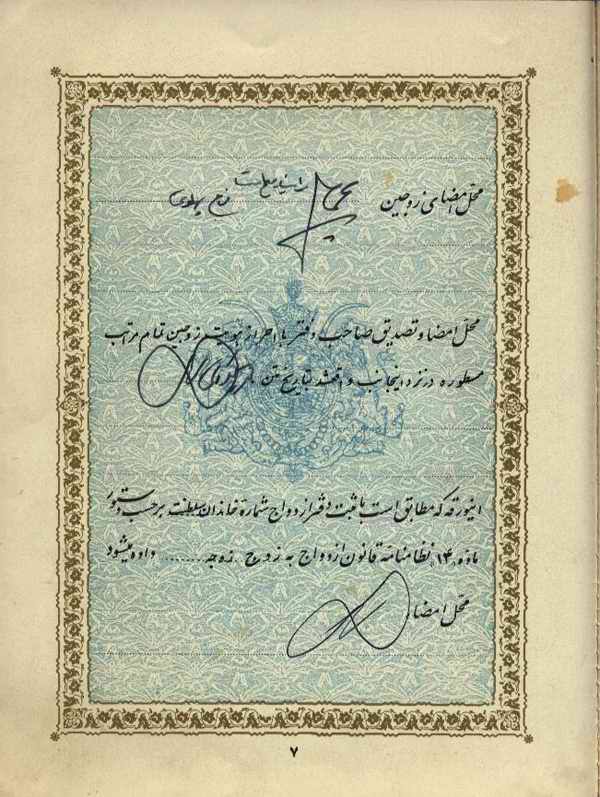 محل امضای زوجین
فرح پهلوی
محل امضا و تصدیق صاحب دفتر با احراز هویت زوجین تمام مراتب
مسطوره در نزد اینجانب واقع شد بتاریخ متن
اینورقه که مطابق است با ثبت دفتر ازدواج شماره خاندان سلطنت برحسب دستور
ماده ۱۴ نظامنامه قانون ازدواج به زوج زوجه ........ داده میشود
محل امضا
۷